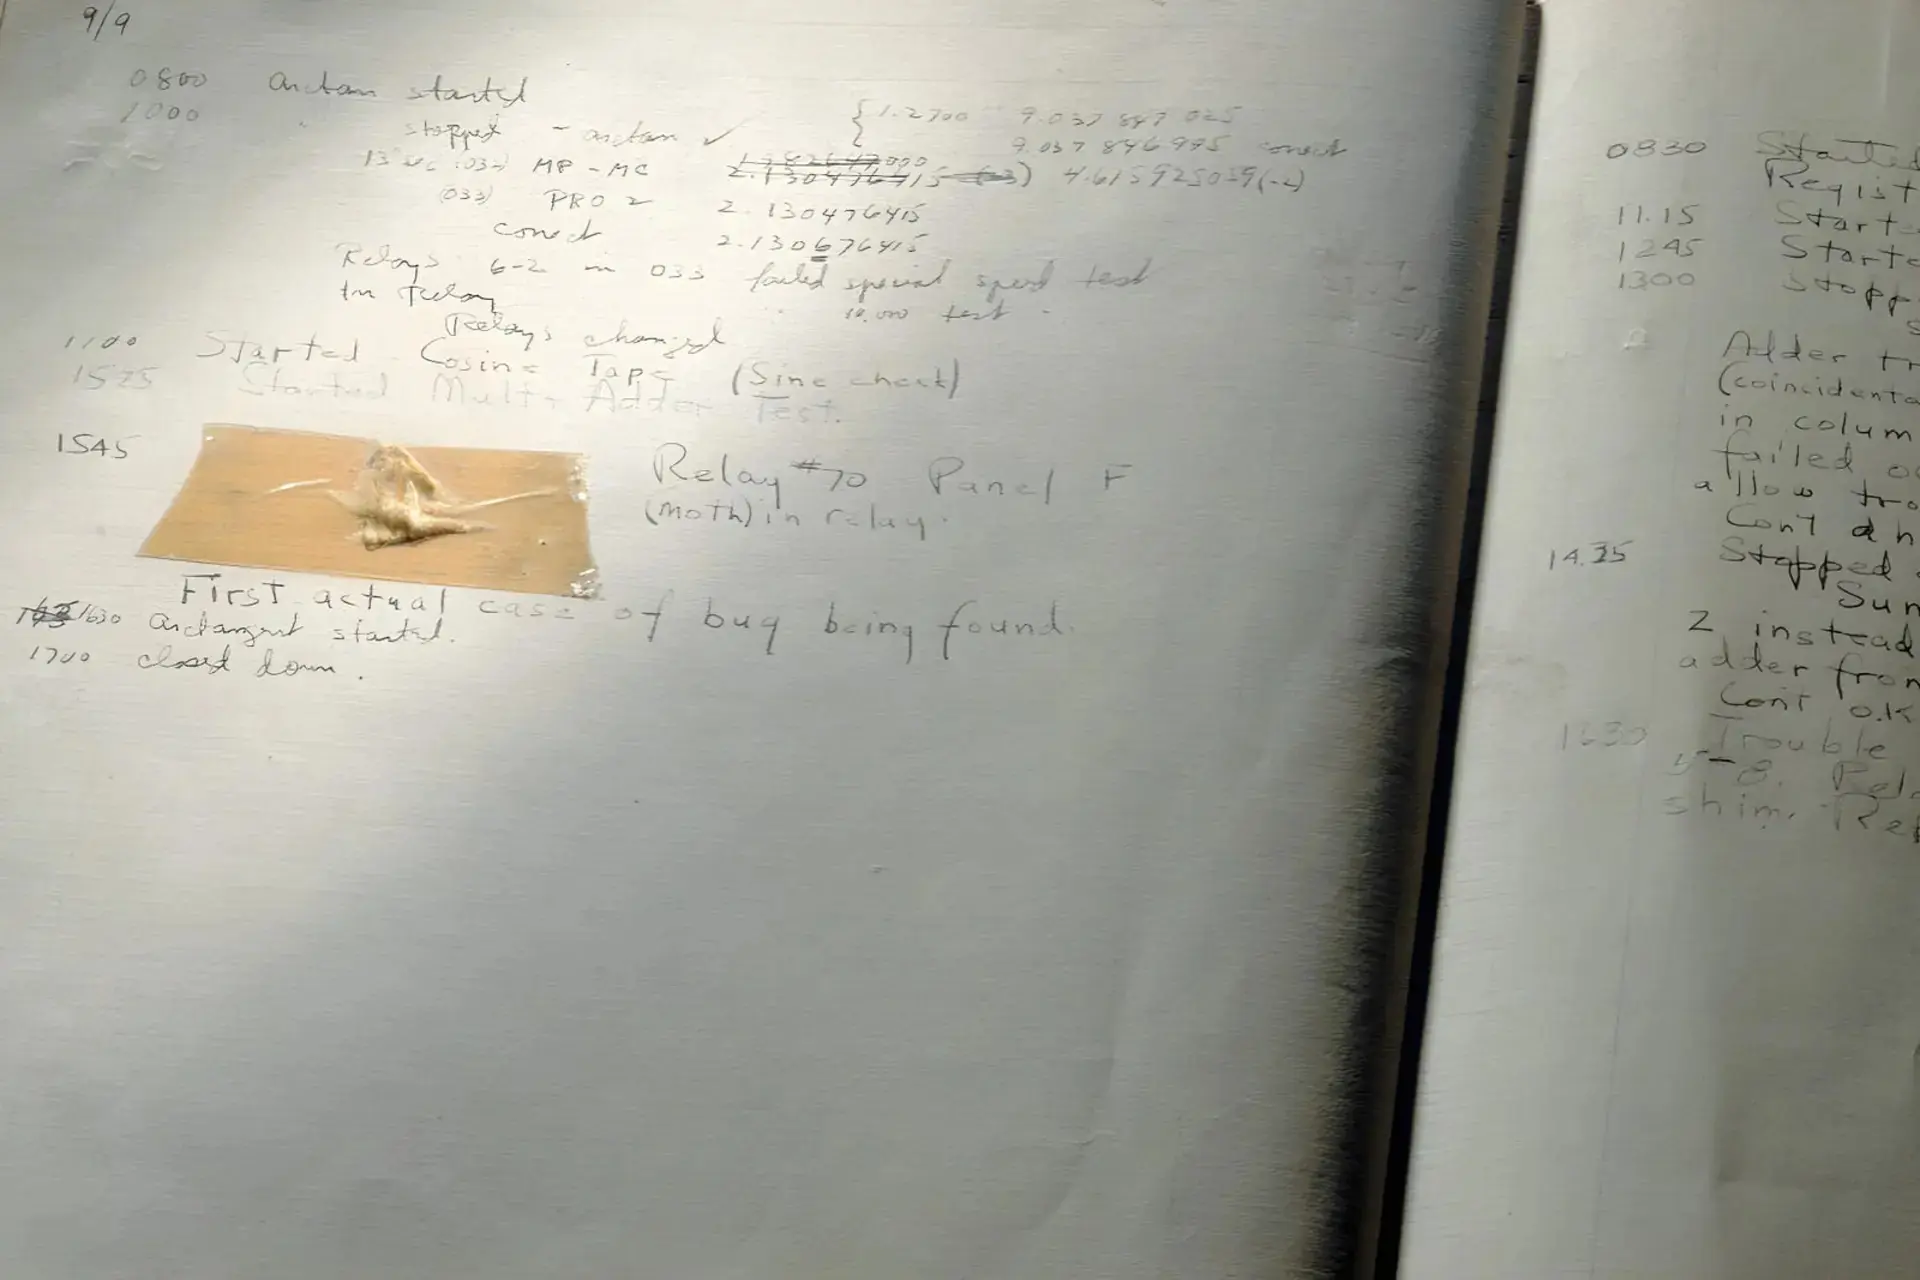 9/9
0800 arctan started
1000 stopped - arctan ✓ { 1.2700 9.037 847 025
9.037 846 995 correct
13"uc (032) MP - MC 2.130476415 (-3) 4.615925059(-2)
(033) PRO 2 2.130476415
correct 2.130676415
Relays 6-2 in 033 failed special speed test
In relay 10.000 test .
Relays changed
1100 Started Cosine Tape (Sine check)
1525 Started Mult+ Adder Test.
1545 Relay #70 Panel F
(moth) in relay.
First actual case of bug being found.
1630 arctangent started.
1700 closed down.
0830 Started
Regist
11.15 Starte
1245 Starte
1300 Stopp
Adder tr
(coincidenta
in colum
failed
allow tro
Con't
14.35 Stopped
Sun
2 instead
adder from
Con't O.K
1630 Trouble
Rela
shim. Re